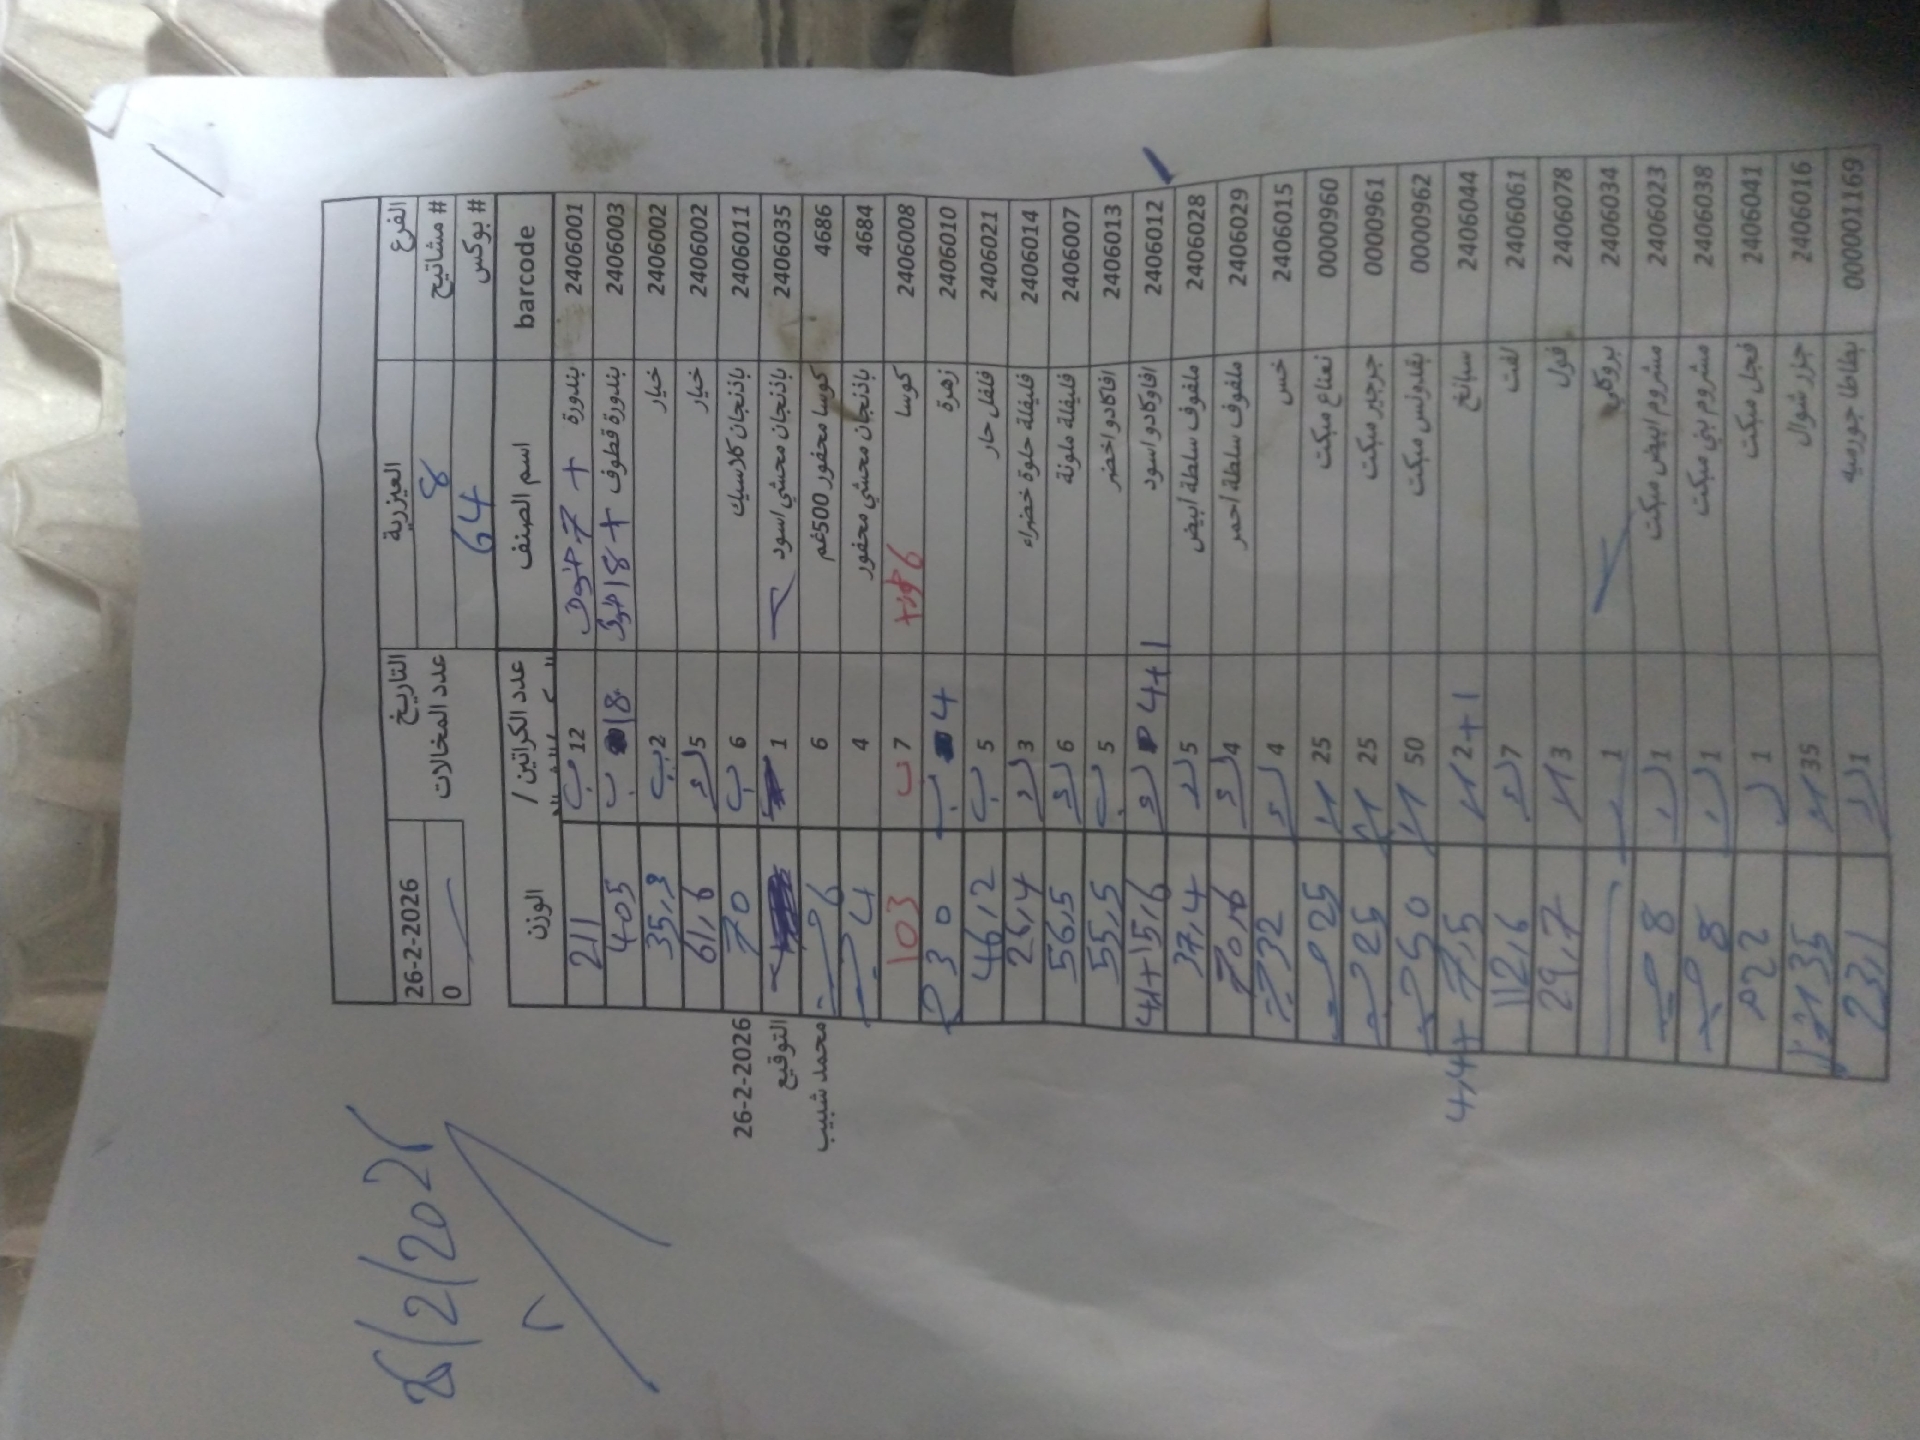 الفرع العيزرية التاريخ 26-2-2026
# مشاتيح 8 عدد المخالات 0
# بوكس 64
barcode اسم الصنف عدد الكراتين / الوزن
2406001 بندورة + 7 12 ب 211
2406003 بندورة قطوف + 18 18 ب 405
2406002 خيار 2 ب 35,3
2406002 خيار 5 61,6
2406011 باذنجان كلاسيك 6 ب 70
2406035 باذنجان محشي اسود 1
4686 كوسا محفور 500غم 6 6
4684 باذنجان محشي محفور 4 4
2406008 كوسا 7 ب 103
2406010 زهرة 4 ب 30
2406021 فلفل حار 5 ب 46,2
2406014 فليفلة حلوة خضراء 3 26,4
2406007 فليفلة ملونة 6 56,5
2406013 افاكادو اخضر 5 ب 55,5
2406012 افاوكادو اسود 4+1 4,1+15,6
2406028 ملفوف سلطة ابيض 5 37,4
2406029 ملفوف سلطة احمر 4 70,6
2406015 خس 4 32
0000960 نعناع مبكت 25 25
0000961 جرجير مبكت 25 25
0000962 بقدونس مبكت 50 50
2406044 سبانخ 2+1 4,4+7,5
2406061 لفت 7 112,6
2406078 فول 3 29,7
2406034 بروكلي 1
2406023 مشروم ابيض مبكت 1 8
2406038 مشروم بني مبكت 1 8
2406041 فجل مبكت 1 22
2406016 جزر شوال 35 35
000001169 بطاطا جورميه 1 23,1
26-2-2026
التوقيع
محمد شبيب